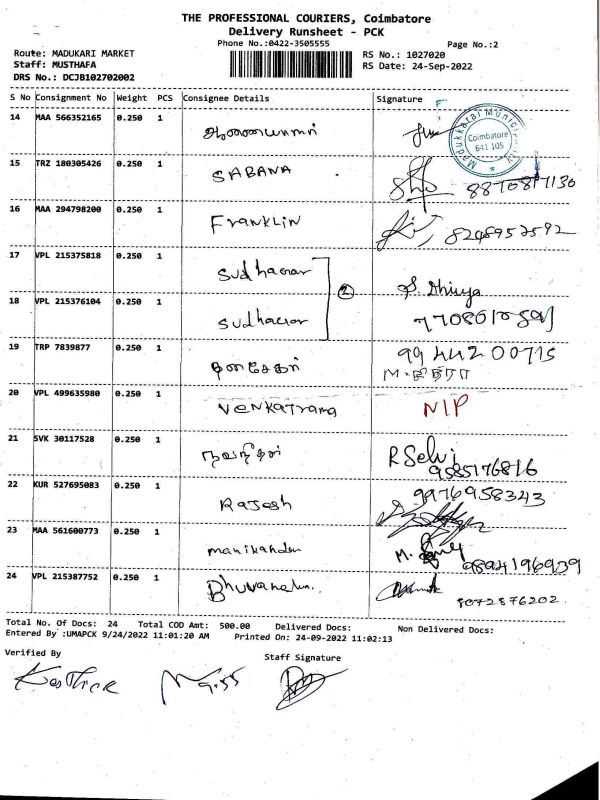 THE PROFESSIONAL COURIERS, Coimbatore
Delivery Runsheet - PCK
Phone No.:0422-3505555 Page No.:2
Route: MADUKARI MARKET RS No.: 1027020
Staff: MUSTHAFA RS Date: 24-Sep-2022
DRS No.: DCJB102702002
S No Consignment No Weight PCS Consignee Details Signature
14 MAA 566352165 0.250 1
Madukkarai Municipality
Coimbatore
641 105
15 TRZ 180305426 0.250 1 SABANA
16 MAA 294798200 0.250 1 FRANKLIN 8248957592
17 VPL 215375818 0.250 1 Sudhacar
2
18 VPL 215376104 0.250 1 Sudhacar
19 TRP 7839877 0.250 1 குணசேகர் 99 442 00715
20 VPL 499635980 0.250 1 Venkatrama NIP
21 SVK 30117528 0.250 1 நவநீதன் R Selvi
9585176816
22 KUR 527695083 0.250 1 Rajesh 9976958343
23 MAA 561600773 0.250 1 manikandan 9894196939
24 VPL 215387752 0.250 1 9072876202
Total No. Of Docs: 24 Total COD Amt: 500.00 Delivered Docs: Non Delivered Docs:
Entered By :UMAPCK 9/24/2022 11:01:20 AM Printed On: 24-09-2022 11:02:13
Verified By Staff Signature
Karthick 9.55